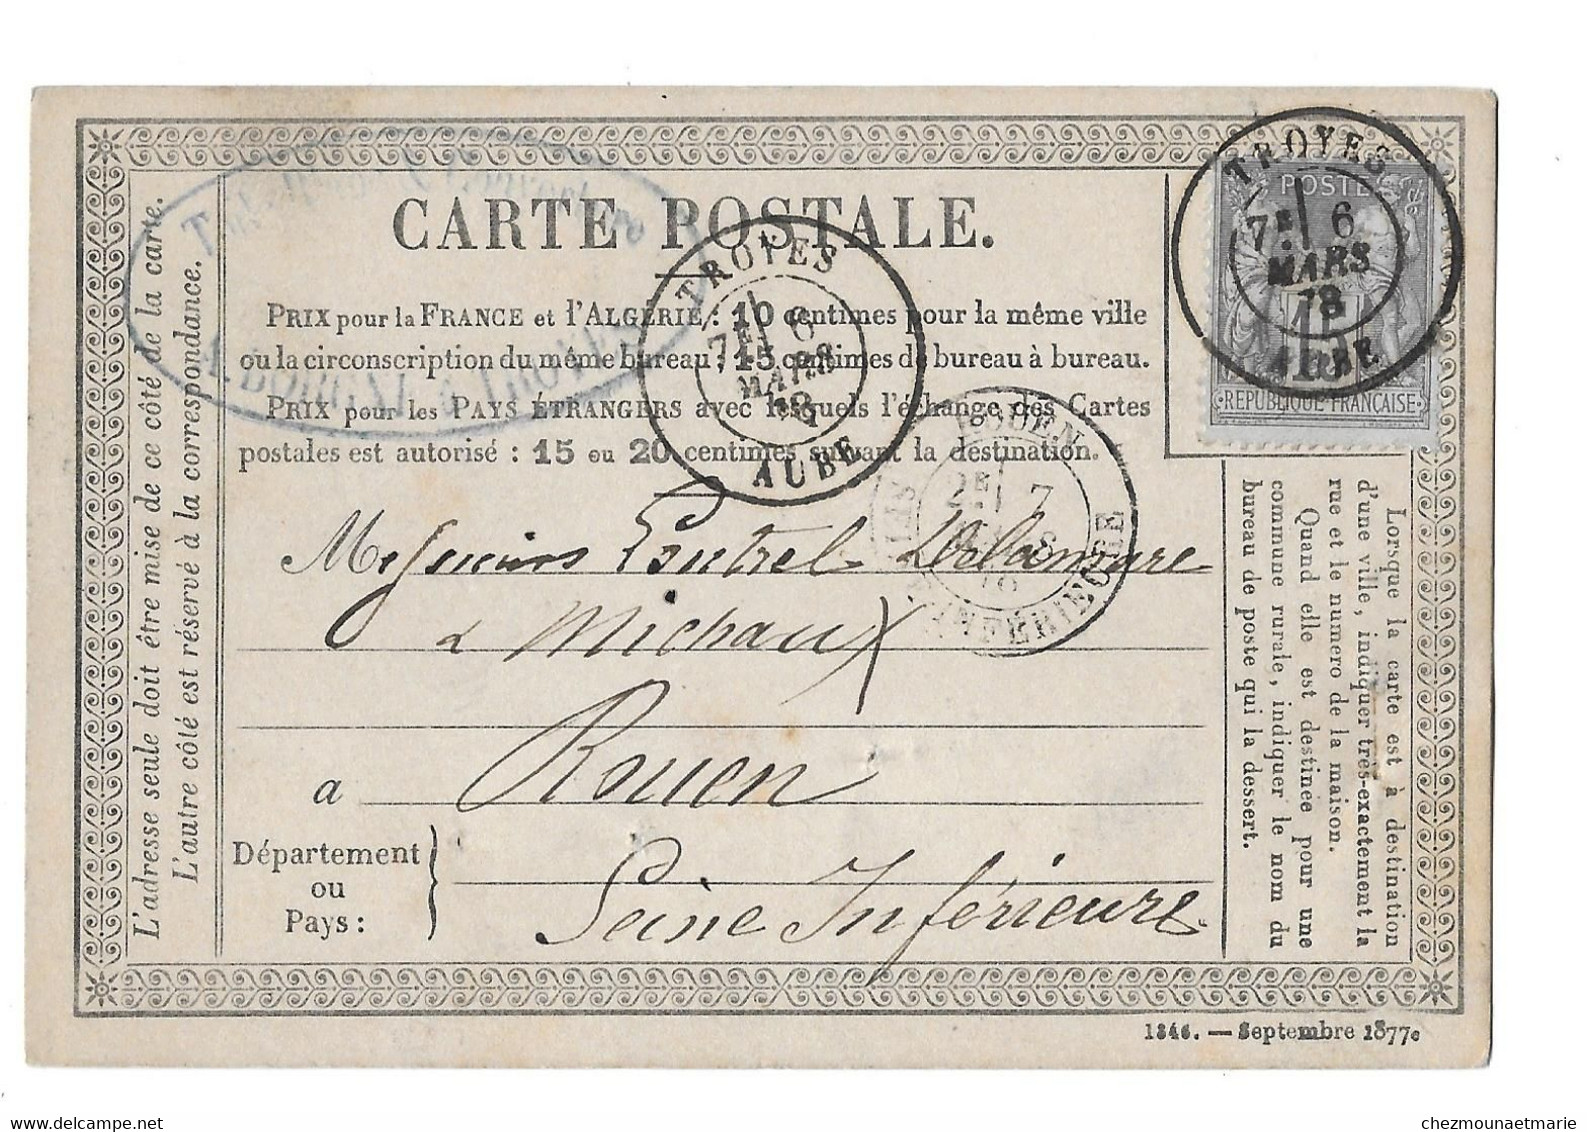 CARTE POSTALE.
PRIX pour la FRANCE et l'ALGÉRIE : 10 centimes pour la même ville
ou la circonscription du même bureau ; 15 centimes de bureau à bureau.
PRIX pour les PAYS ÉTRANGERS avec lesquels l'échange des Cartes
postales est autorisé : 15 ou 20 centimes suivant la destination.
L'adresse seule doit être mise de ce côté de la carte.
L'autre côté est réservé à la correspondance.
TROYES
7E 6
MARS
78
AUBE
TROYES
7E 6
MARS
78
AUBE
POSTE
REPUBLIQUE FRANÇAISE
ROUEN
2E 7
MARS
78
INFÉRIEURE
Messieurs Delamare
& Michaux
a Rouen
Département
ou
Pays :
Seine Inférieure
Lorsque la carte est à destination
d'une ville, indiquer très-exactement la
rue et le numero de la maison.
Quand elle est destinée pour une
commune rurale, indiquer le nom du
bureau de poste qui la dessert.
1846. — Septembre 1877
chezmounaetmarie